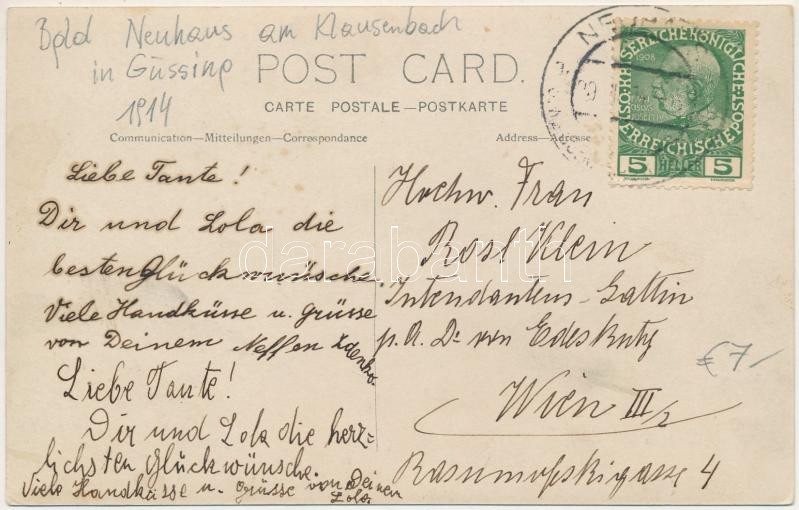 Bgld Neuhaus am Klausenbach
in Güssing
1914
POST CARD.
CARTE POSTALE—POSTKARTE
Communication—Mitteilungen—Correspondance
Address—Adresse
1908
5 HELLER 5
Liebe Tante!
Dir und Lola die
besten Glückwünsche.
Viele Handküsse u. Grüsse
von Deinem Neffen Zdenko.
Liebe Tante!
Dir und Lola die herz-
lichsten Glückwünsche.
Viele Handküsse u. Grüsse von Deinen
Lola
Hochw. Frau
Rosl Klein
Intendantens-Gattin
p. A. Dr von
Wien III/2
Rasumofskigasse 4
€ 7/-
darabanth